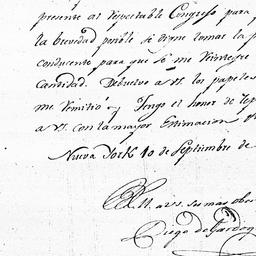 presente al respectable Congreso para
la brevedad posible se digne tomar la p
conducente para que se me reintegre
cantidad. Debuelvo a V.S. los papeles
me remitió y tengo el honor de rep
a V.S. con la mayor Estimacion
Nueva York 10 de Septiembre de
a V.S. su mas obed
Diego de Gardoq